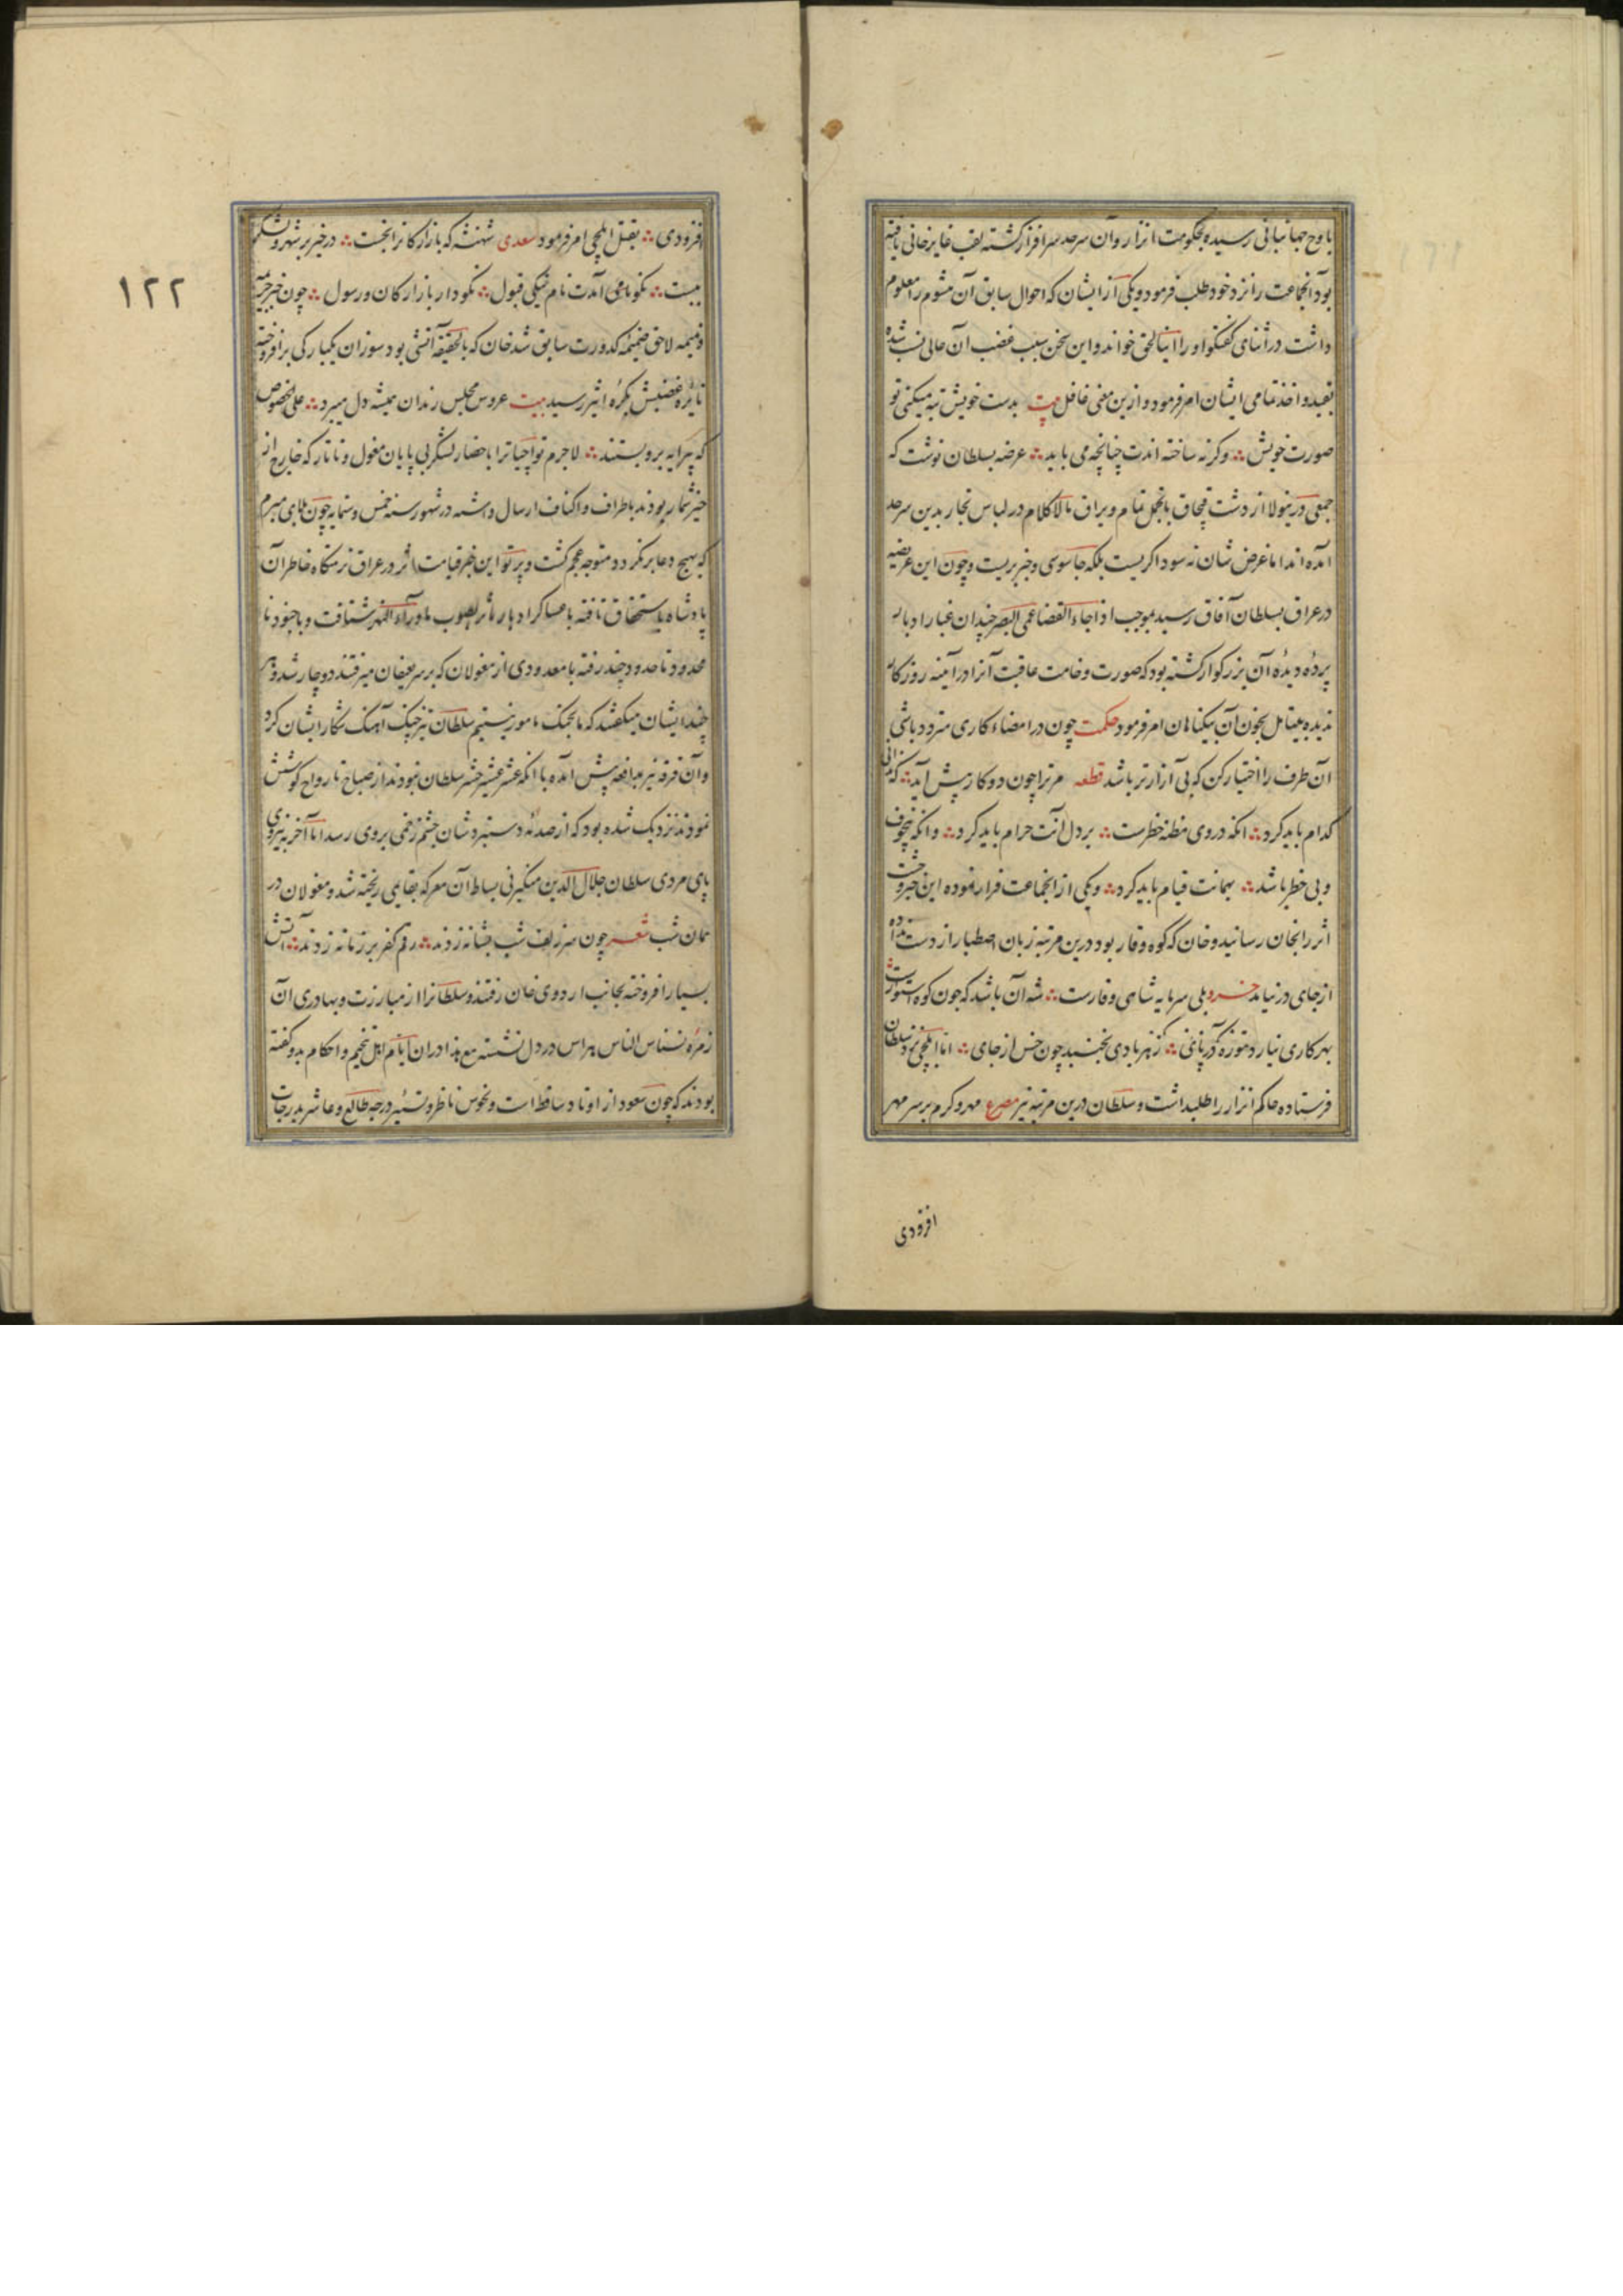 باوج جهانبانی رسیده بحکومت انزار و آن سرحد سرافراز گشته لقب غایرخانی یافته
بود آنجماعت را نزد خود طلب فرمود و یکی از ایشان که احوال سابق آن مشوم را معلوم
داشت در اثنای گفتگو او را اینالحق خواند و این سخن سبب غضب آن عالی نسب شده
بقید و اخذ تمامی ایشان امر فرمود و ازین معنی غافل بیت بدست خویش تبه میکنی تو
صورت خویش وگرنه ساخته اندت چنانچه می باید عرضه بسلطان نوشت که
جمعی درینولا از دشت قبچاق با تجمل تمام و یراق مالاکلام در لباس تجار بدین سرحد
آمده اند اما غرض شان نه سوداگریست بلکه جاسوسی و خبر بریست و چون این عریضه
در عراق بسلطان آفاق رسید بموجب اذا جاء القضا عمی البصر چندان غبار ادبار
پرده دیده آن بزرگوار گشته بود که صورت وخامت عاقبت آنرا در آینه روزگار
ندیده بیتامل بخون آن بیگناهان امر فرمود حکمت چون در امضاء کاری متردد باشی
آن طرف را اختیار کن که بی آزارتر باشد قطعه مر ترا چون دو کار پیش آید که ندانی
کدام باید کرد انکه در وی مظنه خطرست بر دل آنت حرام باید کرد وانکه بیخوف
و بی خطر باشد بهمانت قیام باید کرد و یکی از آنجماعت فرار نموده این خبر وحشت
اثر را بخان رسانید و خان که کوه وقار بود درین مرتبه زبان اصطبار از دست نداده
از جای در نیامد خسرو بلی سرمایه شاهی وقارست شه آن باشد که چون کوه استوارست
بهر کاری نیارد موزه در پای نی کز هر بادی بجنبد چون خس از جای اما ایلچی نزد سلطان
فرستاده حاکم انزار را طلب داشت و سلطان درین مرتبه نیز مصرع مهر و کرم بر سر مهر
افزودی
افزودی بقتل ایلچی امر فرمود سعدی شهنشه که بازارگانرا بخست در خیر بر شهر و لشکر
ببست نکو نامی آمدت نام نیکی قبول نکو دار بازارگان و رسول چون خبر جریمه
ذمیمه لاحق ضمیمه کدورت سابق شد خان که بالحقیقه آتشی بود سوزان یکبارگی برافروخته
نایره غضبش بکره اثیر رسید بیت عروس مجلس رندان همیشه دل میبرد علی الخصوص
که پیرایه برو بستند لاجرم تواچیانرا باحضار لشکر بی پایان مغول و تاتار که خارج از
حیز شمار بودند باطراف و اکناف ارسال داشته در شهور سنه خمس و ستمایه چون بلای مبرم
که بهیچ دعا برنگردد متوجه عجم گشت و پرتو این خبر قیامت اثر در عراق نزهتگاه خاطر آن
پادشاه باستحقاق تافته با عساکر ادبار ماثر بصوب ماوراء النهر شتافت و با جنود نا
محدود تا حدود جند رفته با معدودی از مغولان که بر سر یغیان میرفتند دوچار شد و هر
چند ایشان میگفتند که ما بجنگ مامور نیستیم سلطان تیز چنگ آهنگ شکار ایشان کرد
و آن فرقه نیز بمدافعه پیش آمده با انکه عشر عشیر حشر سلطان نبودند از صباح تا رواح کوشش
نمودند نزدیک شده بود که از صدمه دستبردشان چشم زخمی بروی رسد اما آخر به نیروی
پای مردی سلطان جلال الدین منکبرنی بساط آن معرکه بقایمی ریخته شد و مغولان در
همان شب شعر چون سر زلف شب بشانه زدند رقم کفر بر زمانه زدند آتش
بسیار افروخته بجانب اردوی خان رفتند و سلطانرا از مبارزت و بهادری آن
زمره نسناس الناس هراس در دل نشسته مع هذا در ان ایام اهل تنجیم و احکام بدو گفته
بودند که چون سعود از اوتاد ساقط است و نحوس ناظر و تسییر درجه طالع و عاشر بدرجات
۱۲۲